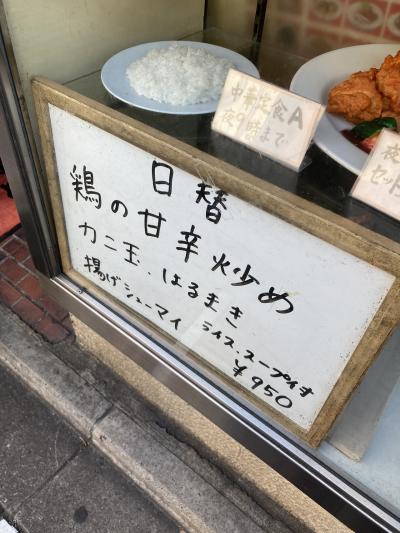 中華定食A
夜9時まで
日替
鶏の甘辛炒め
カニ玉・はるまき
揚げシューマイ
ライス.スープ付
￥950
夜
セット